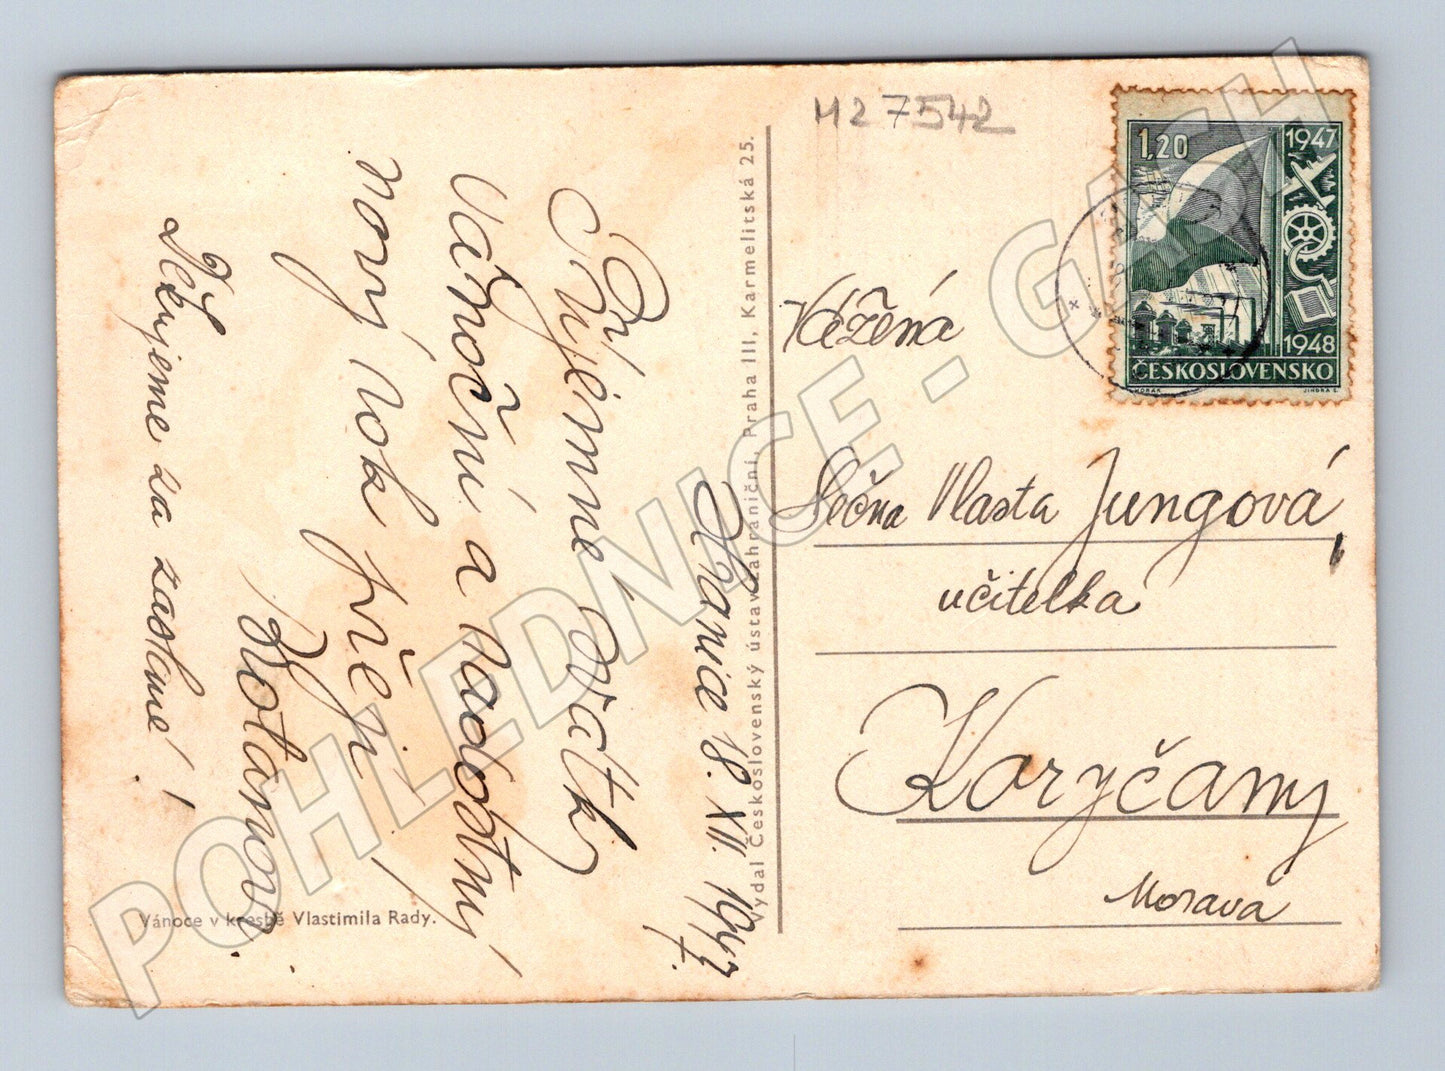 M27542
1,20
1947
1948
ČESKOSLOVENSKO
HORÁK
JINDRA S.
Hranice 18. XII. 1947.
Příjemné svátky
vánoční a radostný
nový rok přejí
Kotanovi
Děkujeme za zaslané!
Vánoce v kresbě Vlastimila Rady.
Vydal Československý ústav zahraniční, Praha III, Karmelitská 25.
Vážená
slečna Vlasta Jungová,
učitelka
Koryčany
Morava
POHLEDNICE - GASH